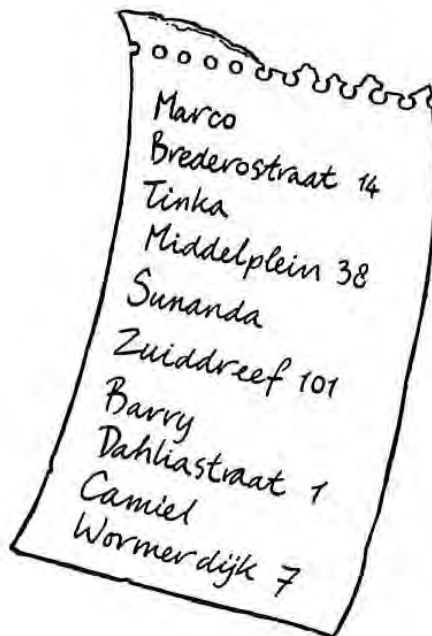 Marco
Brederostraat 14
Tinka
Middelplein 38
Sunanda
Zuiddreef 101
Barry
Dahliastraat 1
Camiel
Wormerdijk 7